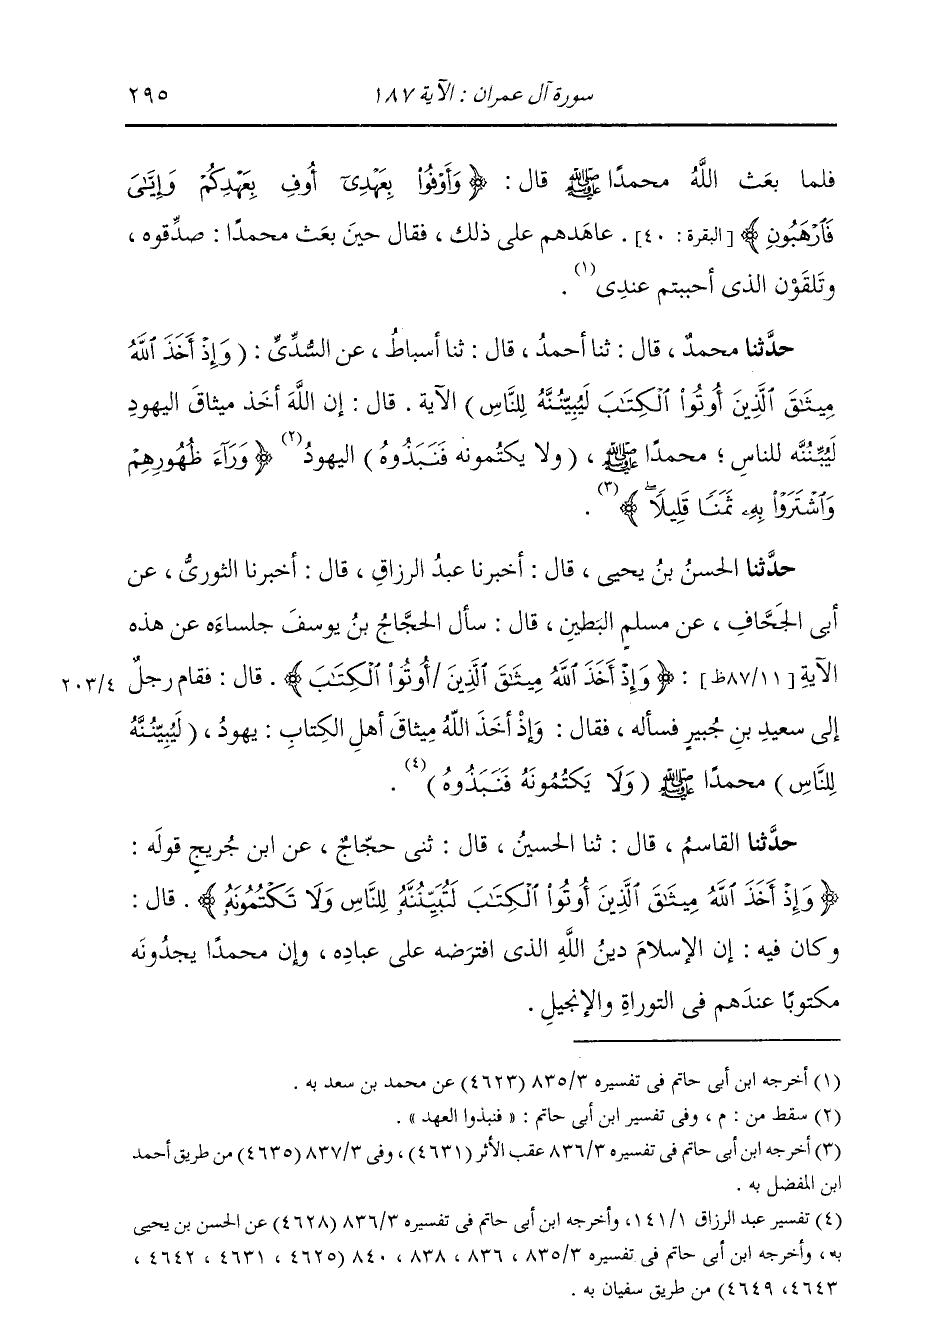 سورة آل عمران : الآية ١٨٧ ٢٩٥
فلما بعَث اللَّهُ محمدًا ﷺ قال : ﴿ وَأَوْفُوا۟ بِعَهْدِىٓ أُوفِ بِعَهْدِكُمْ وَإِيَّـٰىَ
فَٱرْهَبُونِ ﴾ [البقرة : ٤٠] . عاهَدهم على ذلك ، فقال حينَ بعَث محمدًا : صدِّقوه ،
وتَلقَوْن الذى أحببتم عندِى(١) .
حدَّثنا محمدٌ ، قال : ثنا أحمدُ ، قال : ثنا أسباطُ ، عن السُّدِّىِّ : ( وَإِذْ أَخَذَ ٱللَّهُ
مِيثَـٰقَ ٱلَّذِينَ أُوتُوا۟ ٱلْكِتَـٰبَ لَيُبَيِّنُنَّهُ لِلنَّاسِ ) الآية . قال : إن اللَّهَ أخذ ميثاقَ اليهودِ
لَيُبَيِّنُنَّه للناسِ ؛ محمدًا ﷺ ، ( ولا يكتُمونه فَنَبَذُوهُ ) اليهودُ(٢) ﴿ وَرَآءَ ظُهُورِهِمْ
وَٱشْتَرَوْا۟ بِهِۦ ثَمَنًا قَلِيلًا ۖ ﴾(٣) .
حدَّثنا الحسنُ بنُ يحيى ، قال : أخبرنا عبدُ الرزاقِ ، قال : أخبرنا الثورىُّ ، عن
أبى الجَحَّافِ ، عن مسلمٍ البَطينِ ، قال : سأل الحجَّاجُ بنُ يوسفَ جلساءَه عن هذه
الآيةِ [٨٧/١١ظ] : ﴿ وَإِذْ أَخَذَ ٱللَّهُ مِيثَـٰقَ ٱلَّذِينَ /أُوتُوا۟ ٱلْكِتَـٰبَ ﴾ . قال : فقام رجلٌ ٢٠٣/٤
إلى سعيدِ بنِ جُبيرٍ فسأله ، فقال : وَإِذْ أَخَذَ اللّهُ مِيثاقَ أهلِ الكِتابِ : يهودُ ، ( لَيُبَيِّنُنَّهُ
لِلنَّاسِ ) محمدًا ﷺ ( وَلَا يَكْتُمُونَهُ فَنَبَذُوهُ )(٤) .
حدَّثنا القاسمُ ، قال : ثنا الحسينُ ، قال : ثنى حجّاجٌ ، عن ابن جُريجٍ قولَه :
﴿ وَإِذْ أَخَذَ ٱللَّهُ مِيثَـٰقَ ٱلَّذِينَ أُوتُوا۟ ٱلْكِتَـٰبَ لَتُبَيِّنُنَّهُۥ لِلنَّاسِ وَلَا تَكْتُمُونَهُۥ ﴾ . قال :
وكان فيه : إن الإسلامَ دينُ اللَّهِ الذى افترَضه على عبادِه ، وإن محمدًا يجدُونَه
مكتوبًا عندَهم فى التوراةِ والإنجيلِ .
(١) أخرجه ابن أبى حاتم فى تفسيره ٨٣٥/٣ (٤٦٢٣) عن محمد بن سعد به .
(٢) سقط من : م ، وفى تفسير ابن أبى حاتم : « فنبذوا العهد » .
(٣) أخرجه ابن أبى حاتم فى تفسيره ٨٣٦/٣ عقب الأثر (٤٦٣١) ، وفى ٨٣٧/٣ (٤٦٣٥) من طريق أحمد
ابن المفضل به .
(٤) تفسير عبد الرزاق ١٤١/١، وأخرجه ابن أبى حاتم فى تفسيره ٨٣٦/٣ (٤٦٢٨) عن الحسن بن يحيى
به ، وأخرجه ابن أبى حاتم فى تفسيره ٨٣٥/٣ ، ٨٣٦ ، ٨٣٨ ، ٨٤٠ (٤٦٢٥ ، ٤٦٣١ ، ٤٦٤٢ ،
٤٦٤٣، ٤٦٤٩) من طريق سفيان به .